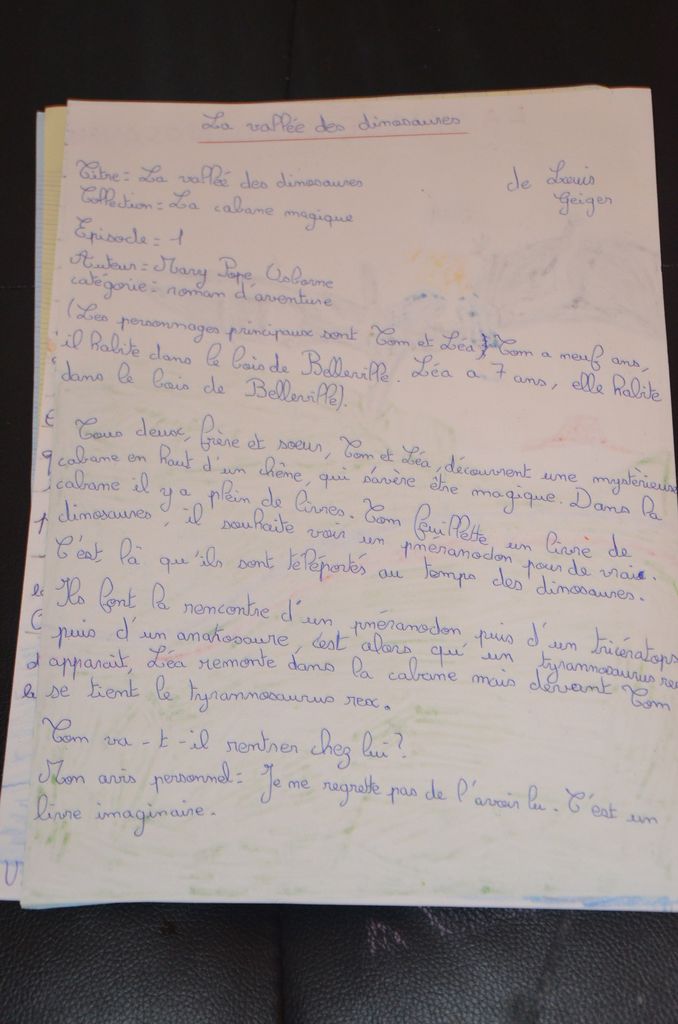 La vallée des dinosaures
Titre = La vallée des dinosaures
de Louis
Geiger
Collection = La cabane magique
Episode = 1
Auteur = Mary Pope Osborne
catégorie = roman d'aventure
(Les personnages principaux sont Tom et Léa} Tom a neuf ans,
il habite dans le bois de Belleville. Léa a 7 ans, elle habite
dans le bois de Belleville).
Tous deux, frère et soeur, Tom et Léa, découvrent une mystérieuse
cabane en haut d'un chêne, qui s'avère être magique. Dans la
cabane il y a plein de livres. Tom feuillette un livre de
dinosaures, il souhaite voir un pnéranodon pour de vrai.
C'est là qu'ils sont téléportés au temps des dinosaures.
Ils font la rencontre d'un pnéranodon puis d'un tricératops
puis d'un anatosaure, c'est alors qu'un tyrannosaurus rex
apparait, Léa remonte dans la cabane mais devant Tom
se tient le tyrannosaurus rex.
Tom va-t-il rentrer chez lui?
Mon avis personnel = Je ne regrette pas de l'avoir lu. C'est un
livre imaginaire.